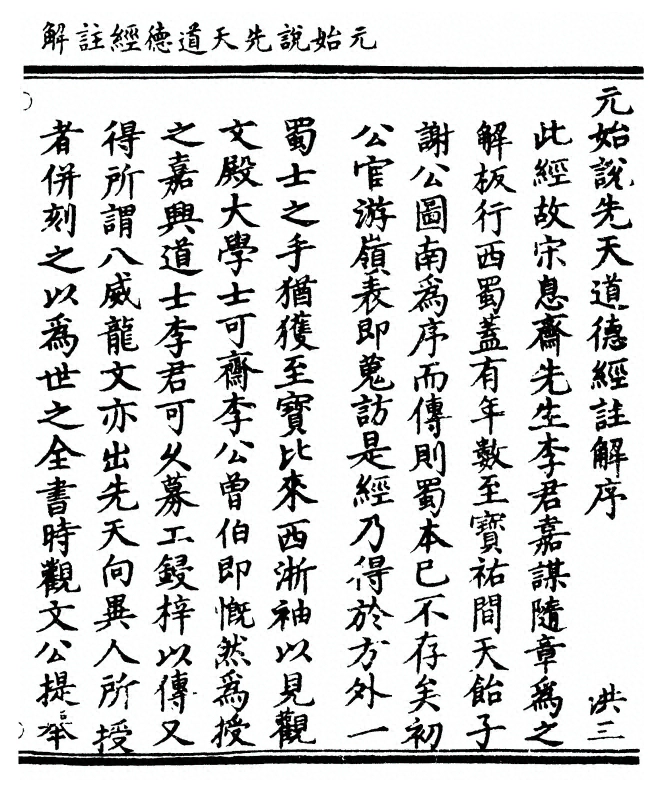 元始說先天道德經註解
元始說先天道德經註解序
洪三
此經故宋息齋先生李君嘉謀隨章爲之
解板行西蜀蓋有年數至寶祐間天飴子
謝公圖南爲序而傳則蜀本已不存矣初
公官游嶺表即蒐訪是經乃得於方外一
蜀士之手猶獲至寶比來西浙袖以見觀
文殿大學士可齋李公曾伯即慨然爲授
之嘉興道士李君可久募工鋟梓以傳又
得所謂八威龍文亦出先天向異人所授
者併刻之以爲世之全書時觀文公提舉